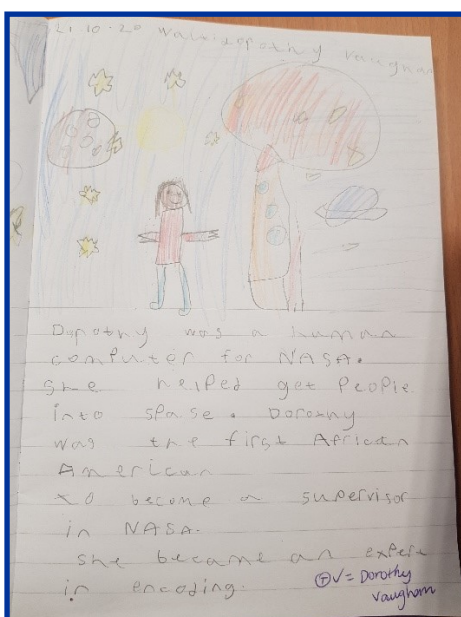 21.10.20 Walt: Dorothy Vaughan
Dorothy was a human
computer for NASA.
She helped get People
into spase. Dorothy
was the first African
American
to become a supervisor
in NASA.
she became an expert
in encoding.
T V = Dorothy
Vaughan